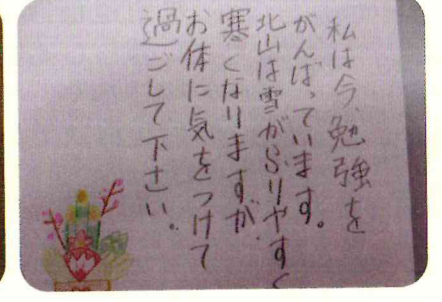 私は今、勉強を
がんばっています。
北山は雪がふりやすく
寒くなりますが、
お体に気をつけて
過ごして下さい。